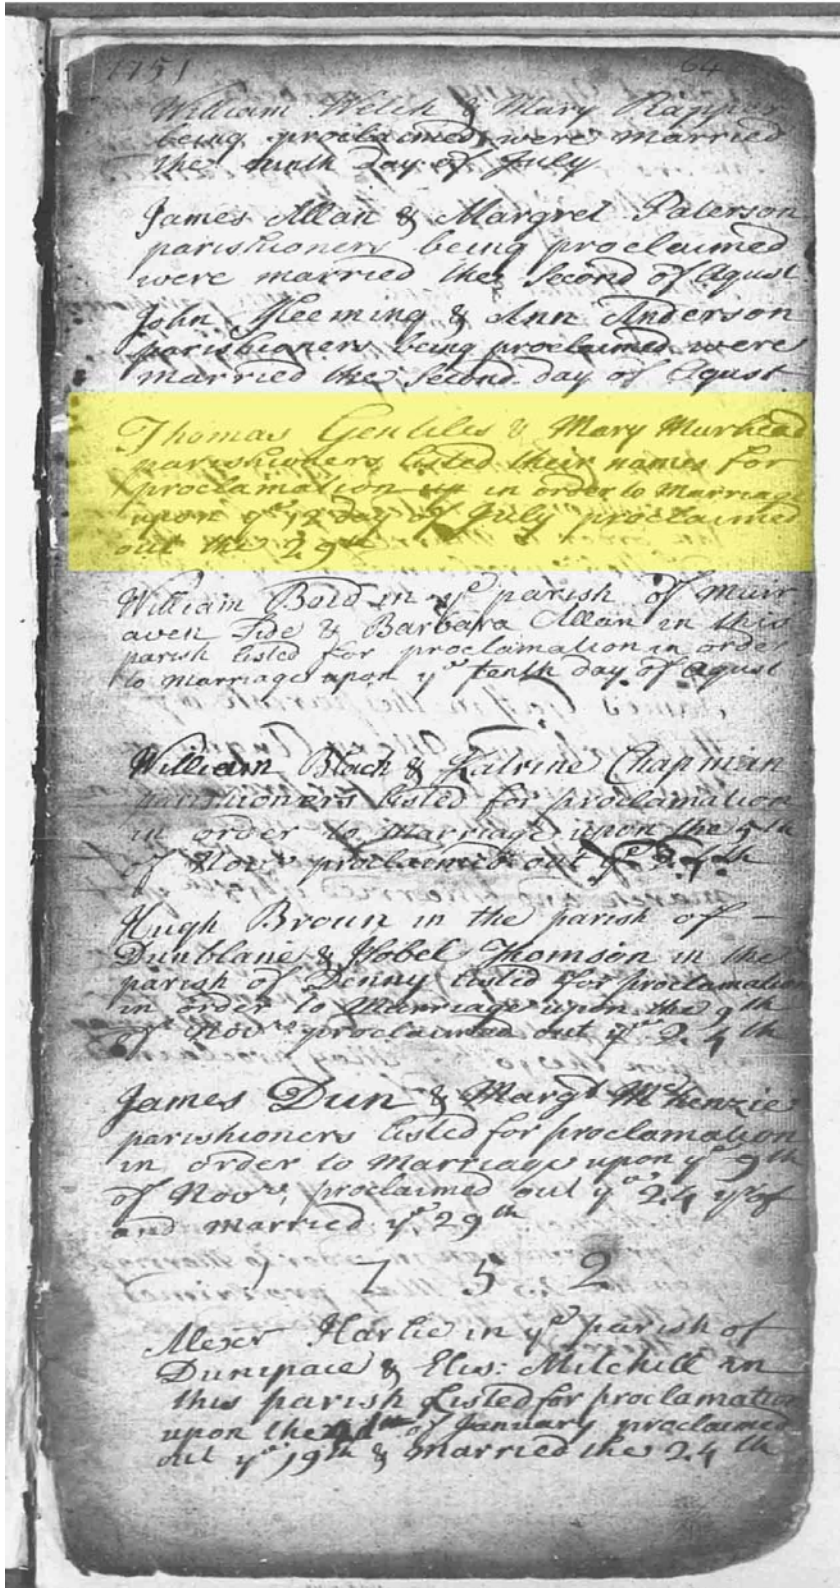 1751 64
William Welch & Mary Rapper
being proclaimed were married
the ninth day of July
James Allan & Margret Paterson
parishioners being proclaimed
were married the Second of Agust
John Fleeming & Ann Anderson
parishioners being proclaimed were
married the Second day of Agust
Thomas Gentiles & Mary Murhead
parishioners listed their names for
proclamation up in order to Marriage
upon ye 12 day of July proclaimed
out the 29th
William Boid in ye parish of Muir
aven Side & Barbara Allan in this
parish listed for proclamation in order
to marriage upon ye tenth day of Agust
William Black & Katrine Chapman
parishioners listed for proclamation
in order to Marriage upon the 5th
of Novr proclaimed out ye
Hugh Broun in the parish of -
Dunblane & Isobel Thomson in the
parish of Denny listed for proclamation
in order to Marriage upon the 9th
of Novr proclaimed out ye 24th
James Dun & Margt McKenzie
parishioners listed for proclamation
in order to Marriage upon ye 9th
of Novr, proclaimed out ye 24 yrof
and married ye 29th
1 7 5 2
Alexr Harlie in ye parish of
Dunipace & Elis: Mitchill in
this parish Listed for proclamation
upon the of January proclaimed
out ye 19th & married the 24th